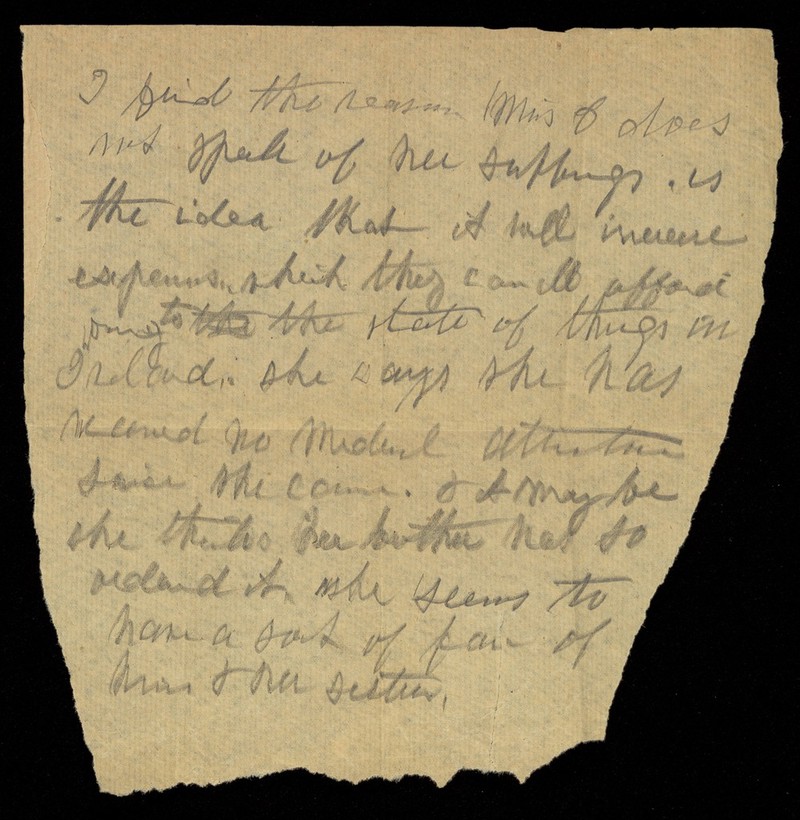 I find the reason Miss S does
not speak of her suffrings. is
the idea that it will increase
expenses, which they can ill afford
owing to the the state of things in
Ireland. she says she has
received no Medical attention
since she came. & it may be
she thinks her brother has so
ordered it. she seems to
have a sort of fear of
him & her sister.